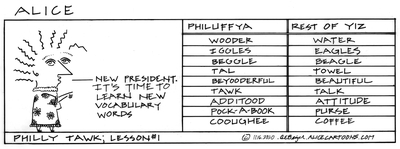 ALICE
NEW PRESIDENT.
IT'S TIME TO
LEARN NEW
VOCABULARY
WORDS
PHILLY TAWK; LESSON #1
PHILUFFYA REST OF YIZ
WOODER WATER
IGGLES EAGLES
BEGGLE BEAGLE
TAL TOWEL
BEYOODERFUL BEAUTIFUL
TAWK TALK
ADDITOOD ATTITUDE
POCK-A-BOOK PURSE
COOUGHEE COFFEE
© 2020 ALICECARTOONS.COM